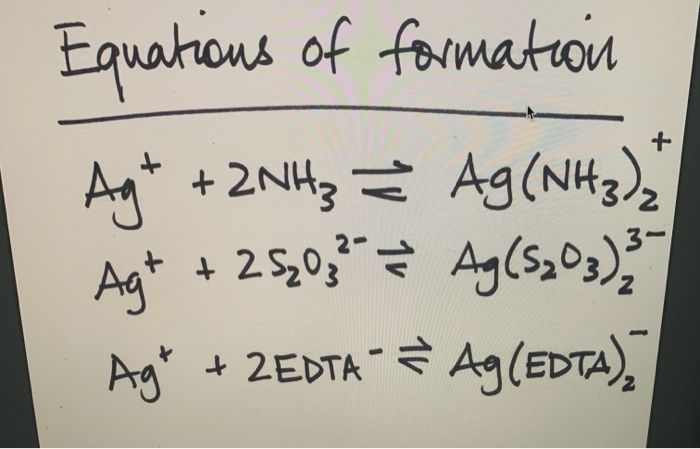 Equations of formation
Ag⁺ + 2NH₃ ⇌ Ag(NH₃)₂⁺
Ag⁺ + 2S₂O₃²⁻ ⇌ Ag(S₂O₃)₂³⁻
Ag⁺ + 2EDTA⁻ ⇌ Ag(EDTA)₂⁻